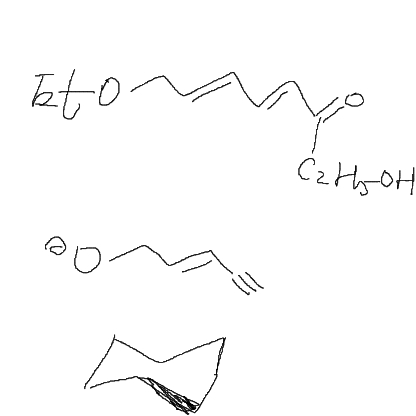 EtO
O
C₂H₅-OH
⊖ O